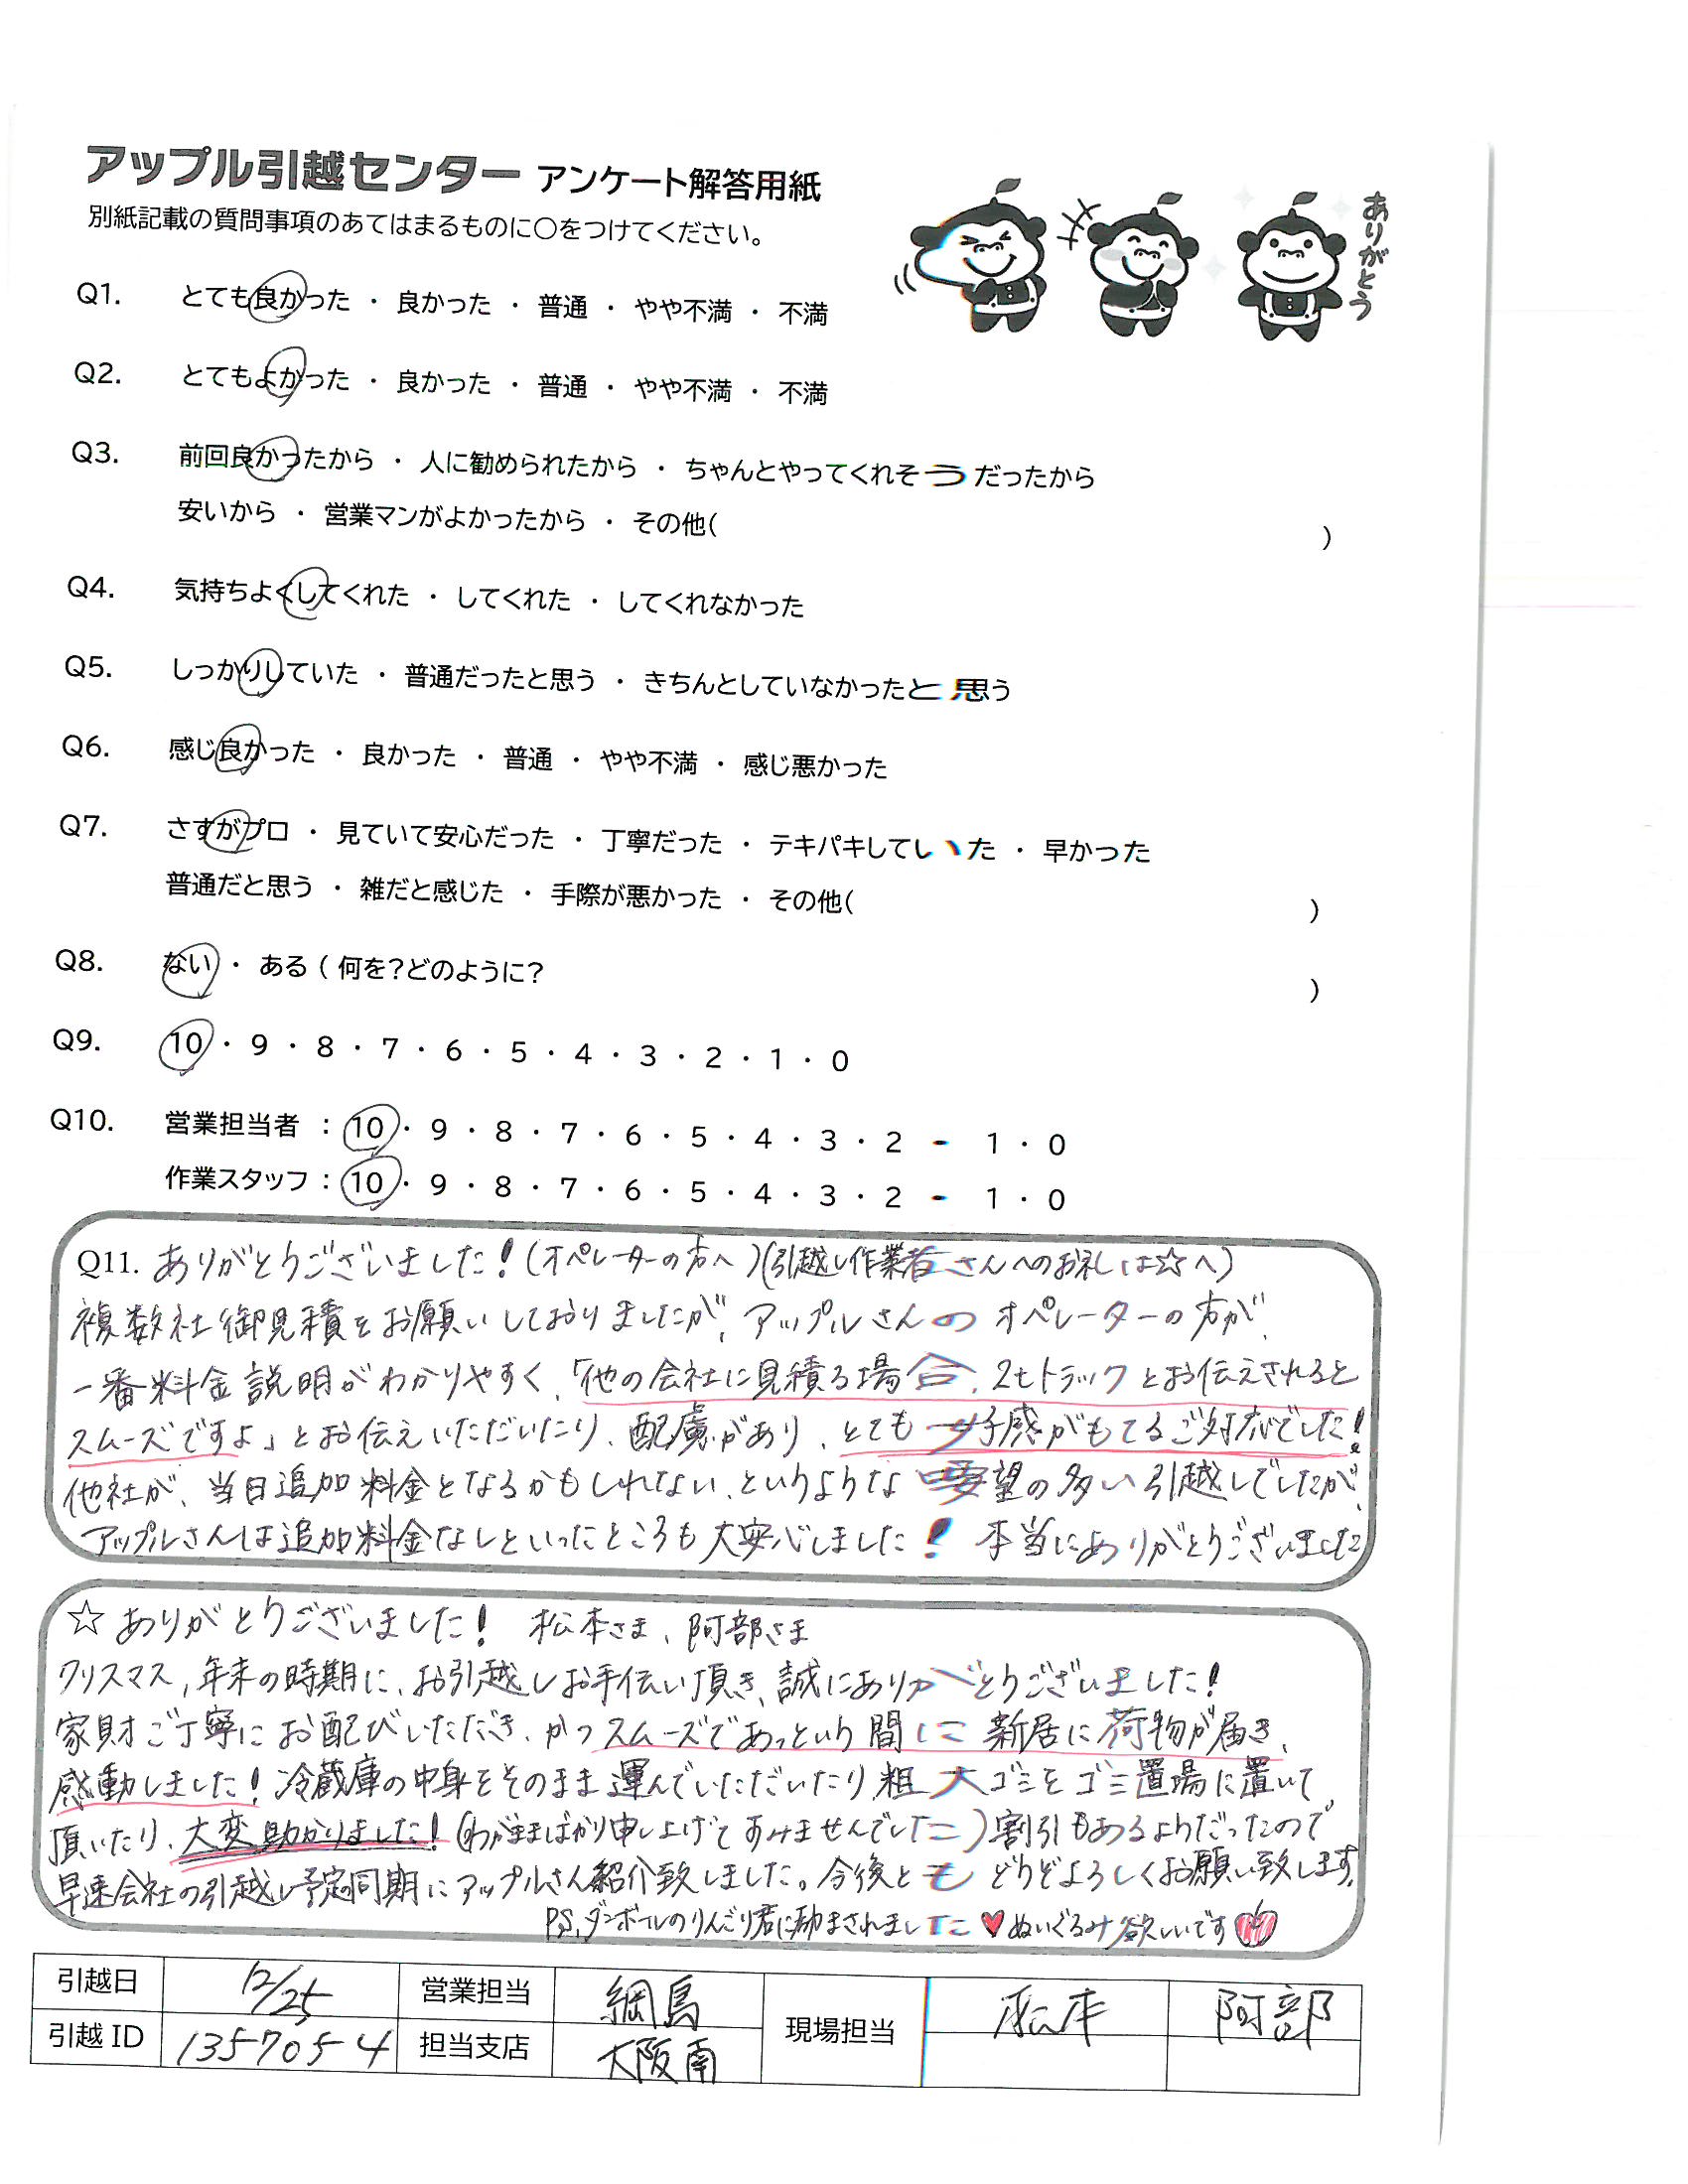 アップル引越センター アンケート解答用紙
別紙記載の質問事項のあてはまるものに〇をつけてください。
ありがとう
Q1. とても良かった ・ 良かった ・ 普通 ・ やや不満 ・ 不満
Q2. とてもよかった ・ 良かった ・ 普通 ・ やや不満 ・ 不満
Q3. 前回良かったから ・ 人に勧められたから ・ ちゃんとやってくれそうだったから
安いから ・ 営業マンがよかったから ・ その他( )
Q4. 気持ちよくしてくれた ・ してくれた ・ してくれなかった
Q5. しっかりしていた ・ 普通だったと思う ・ きちんとしていなかったと思う
Q6. 感じ良かった ・ 良かった ・ 普通 ・ やや不満 ・ 感じ悪かった
Q7. さすがプロ ・ 見ていて安心だった ・ 丁寧だった ・ テキパキしていた ・ 早かった
普通だと思う ・ 雑だと感じた ・ 手際が悪かった ・ その他( )
Q8. ない ・ ある ( 何を?どのように? )
Q9. 10 ・ 9 ・ 8 ・ 7 ・ 6 ・ 5 ・ 4 ・ 3 ・ 2 ・ 1 ・ 0
Q10. 営業担当者 : 10 ・ 9 ・ 8 ・ 7 ・ 6 ・ 5 ・ 4 ・ 3 ・ 2 ・ 1 ・ 0
作業スタッフ : 10 ・ 9 ・ 8 ・ 7 ・ 6 ・ 5 ・ 4 ・ 3 ・ 2 ・ 1 ・ 0
Q11. ありがとうございました!(オペレーターの方へ)(引越し作業者さんへのお礼は☆へ)
複数社御見積をお願いしておりましたが、アップルさんのオペレーターの方が、
一番料金説明がわかりやすく、「他の会社に見積る場合、2tトラックとお伝えされると
スムーズですよ」とお伝えいただいたり、配慮があり、とても好感がもてるご対応でした!
他社が、当日追加料金となるかもしれない、というような要望の多い引越しでしたが、
アップルさんは追加料金なしといったところも大安心しました! 本当にありがとうございました
☆ ありがとうございました! 松本さま、阿部さま
クリスマス,年末の時期に、お引越しお手伝い頂き、誠にありがとうございました!
家財ご丁寧にお配びいただき、かつスムーズであっという間に新居に荷物が届き、
感動しました!冷蔵庫の中身をそのまま運んでいただいたり粗大ゴミをゴミ置場に置いて
頂いたり、大変助かりました!(わがままばかり申し上げてすみませんでした)割引もあるようだったので
早速会社の引越し予定の同期にアップルさん紹介致しました。今後ともどうぞよろしくお願い致します。
P.S.ダンボールのりんごり君に励まされました♥ぬいぐるみ欲しいです
引越日 12/25 営業担当 綱島 現場担当 松本 阿部
引越 ID 1357054 担当支店 大阪南